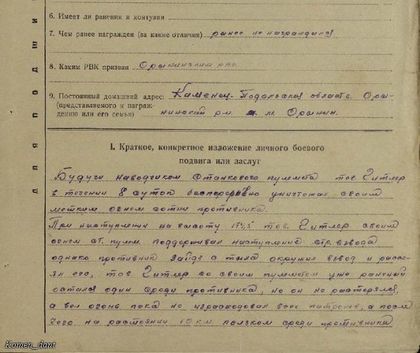 6. Имеет ли ранения и контузии
7. Чем ранее награжден (за какие отличия) ранее не награждался
8. Каким РВК призван Орынинский рвк
9. Постоянный домашний адрес: Каменец-Подольская область, Оры-
(представляемого к награж-
дению или его семьи) нинский р-н м. Орынин
I. Краткое, конкретное изложение личного боевого
подвига или заслуг
Будучи наводчиком станкового пулемета тов. Гитлер
в течении 8 суток беспрерывно уничтожал своим
метким огнем сотни противника.
При наступлении на высоту 174,5 тов. Гитлер своим
огнем ст. пулем. поддерживал наступление стр. взвода
однако противник зайдя с тыла окружил взвод и рассе-
ял его, тов. Гитлер со своим пулеметом уже раненый
остался один среди противника, но он не растерялся,
а вел огонь пока не израсходовал всех патронов, а после
чего на расстоянии 10 км. ползком среди противника
Komen_dant